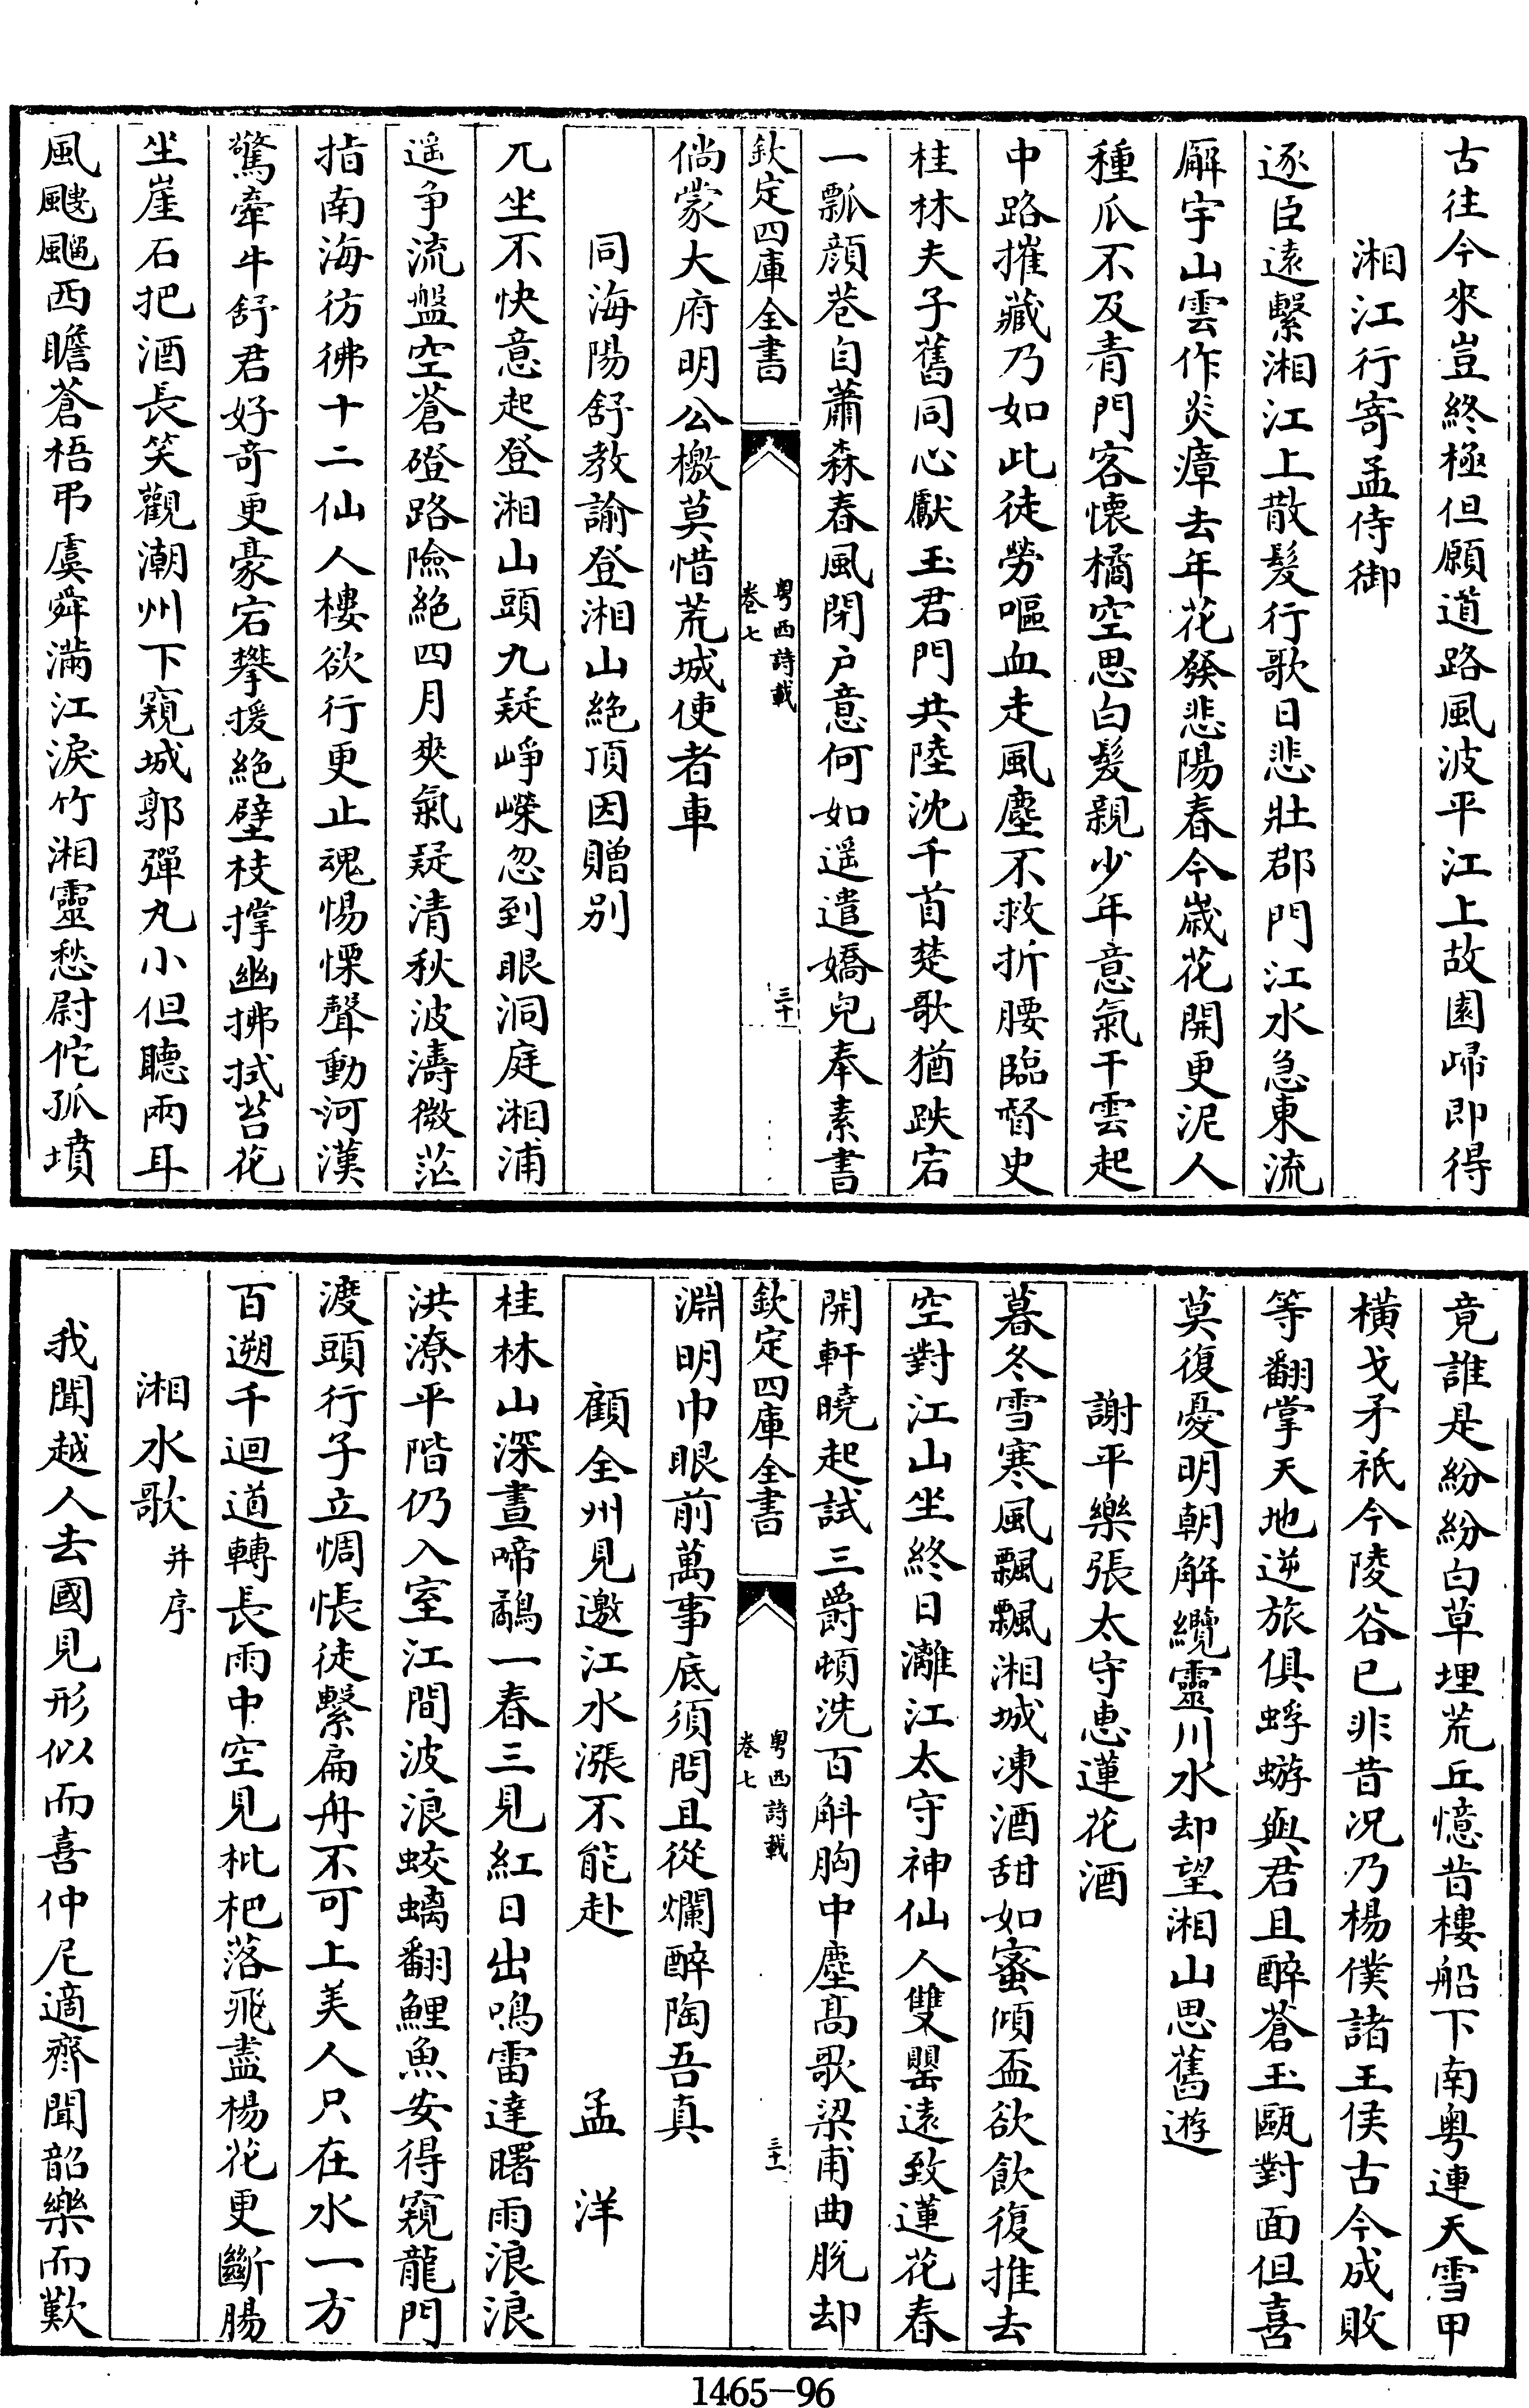 古往今來豈終極但願道路風波平江上故園歸即得
湘江行寄孟侍御
逐臣遠繫湘江上散髮行歌日悲壯郡門江水急東流
廨宇山雲作炎瘴去年花發悲陽春今歲花開更泥人
種瓜不及青門客懷橘空思白髮親少年意氣干雲起
中路摧藏乃如此徒勞嘔血走風塵不救折腰臨督史
桂林夫子舊同心獻玉君門共陸沈千首楚歌猶跌宕
一瓢顏巷自蕭森春風閉戶意何如遥遣嬌兒奉素書
欽定四庫全書
粵西詩載
卷七
三十
倘蒙大府明公檄莫惜荒城使者車
同海陽舒教諭登湘山絶頂因贈别
兀坐不快意起登湘山頭九疑崢嶸忽到眼洞庭湘浦
遥争流盤空蒼磴路險絶四月爽氣疑清秋波濤微茫
指南海彷彿十二仙人樓欲行更止魂惕慄聲動河漢
驚牽牛舒君好奇更豪宕攀援絶壁枝撑幽拂拭苔花
坐崖石把酒長笑觀潮州下窺城郭彈丸小但聽兩耳
風颼飀西瞻蒼梧弔虞舜滿江淚竹湘靈愁尉佗孤墳
竟誰是紛紛白草埋荒丘憶昔樓船下南粵連天雪甲
橫戈矛祇今陵谷已非昔況乃楊僕諸王侯古今成敗
等翻掌天地逆旅俱蜉蝣與君且醉蒼玉甌對面但喜
莫復憂明朝解纜靈川水却望湘山思舊遊
謝平樂張太守惠蓮花酒
暮冬雪寒風飄飄湘城凍酒甜如蜜傾盃欲飲復推去
空對江山坐終日灕江太守神仙人雙罌遠致蓮花春
開軒曉起試三爵頓洗百斛胸中塵高歌梁甫曲脫却
欽定四庫全書
粵西詩載
卷七
三十一
淵明巾眼前萬事底須問且從爛醉陶吾真
顧全州見邀江水漲不能赴 孟洋
桂林山深晝啼鷸一春三見紅日出鳴雷達曙雨浪浪
洪潦平階仍入室江間波浪蛟螭翻鯉魚安得窺龍門
渡頭行子立惆悵徒繫扁舟不可上美人只在水一方
百遡千迴道轉長雨中空見枇杷落飛盡楊花更斷腸
湘水歌并序
我聞越人去國見形似而喜仲尼適齊聞韶樂而歎
1465-96